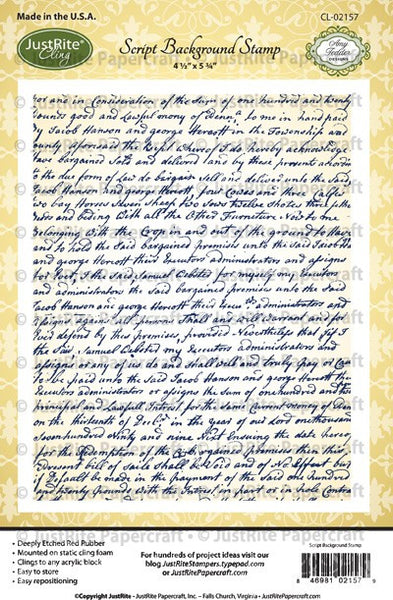 Made in the U.S.A.
CL-02157
JustRite®
Cling
Script Background Stamp
4 ½" x 5 ¾"
Amy Tedder
DESIGNS
for and in Consideration of the Sum of one hundred and twenty
pounds good and Lawful mony of Penna to me in hand paid
by Jacob Hanson and george Heroott in the Township and
County aforesaid the Rept Whereof I do hereby acknowledge
have bargained Sold and delivred and by these presents
to the due form of Law do bargain Sell and delivred unto the Said
Jacob Hanson and george Heroott four Cowes and three
two bay Horses Seven Sheep two Sows twelve Shotes three
and beding With all the Other Furniture Now to one
Belonging With the Crop in and out of the ground to Have
and to hold the Said bargained premises unto the Said Jacob
and george Heroott their Executors administrators and assigns
for I the Said Samuel Webster for my self my Executors
and administrators the Said bargained promises unto the Said
Jacob Hanson and george Heroott their administrators and
assigns against all persons Shall and Will warrant and for
Ever defend by this premises, provided Nevertheless that if I
the Said Samuel Webster my Executors administrators and
assigns or any of us do and Shall Will and truly pay or
to be paid unto the Said Jacob Hanson and george Heroott the
Executors administrators or assigns the Sum of one hundred and
principal and Lawfull Intrest for the Same Current money of
on the thirteenth of in the year of our Lord one thousand
Seven hundred Ninty and nine Next Ensuing the date hereof
for the Redemption of the bargained premises then this
present bill of Saile Shall be Void and of No Effect but
if Default be made in the payment of the Said one hundred
and twenty Pounds With the Intrest in part or in hole Contra
• Deeply Etched Red Rubber
• Mounted on static cling foam
• Clings to any acrylic block
• Easy to store
• Easy repositioning
For hundreds of project ideas visit our
blog JustRiteStampers.typepad.com
or JustRitePapercraft.com
Script Background Stamp
8 46981 02157 9
©Copyright JustRite - JustRite Papercraft, Inc. – Falls Church, Virginia - JustRitePapercraft.com